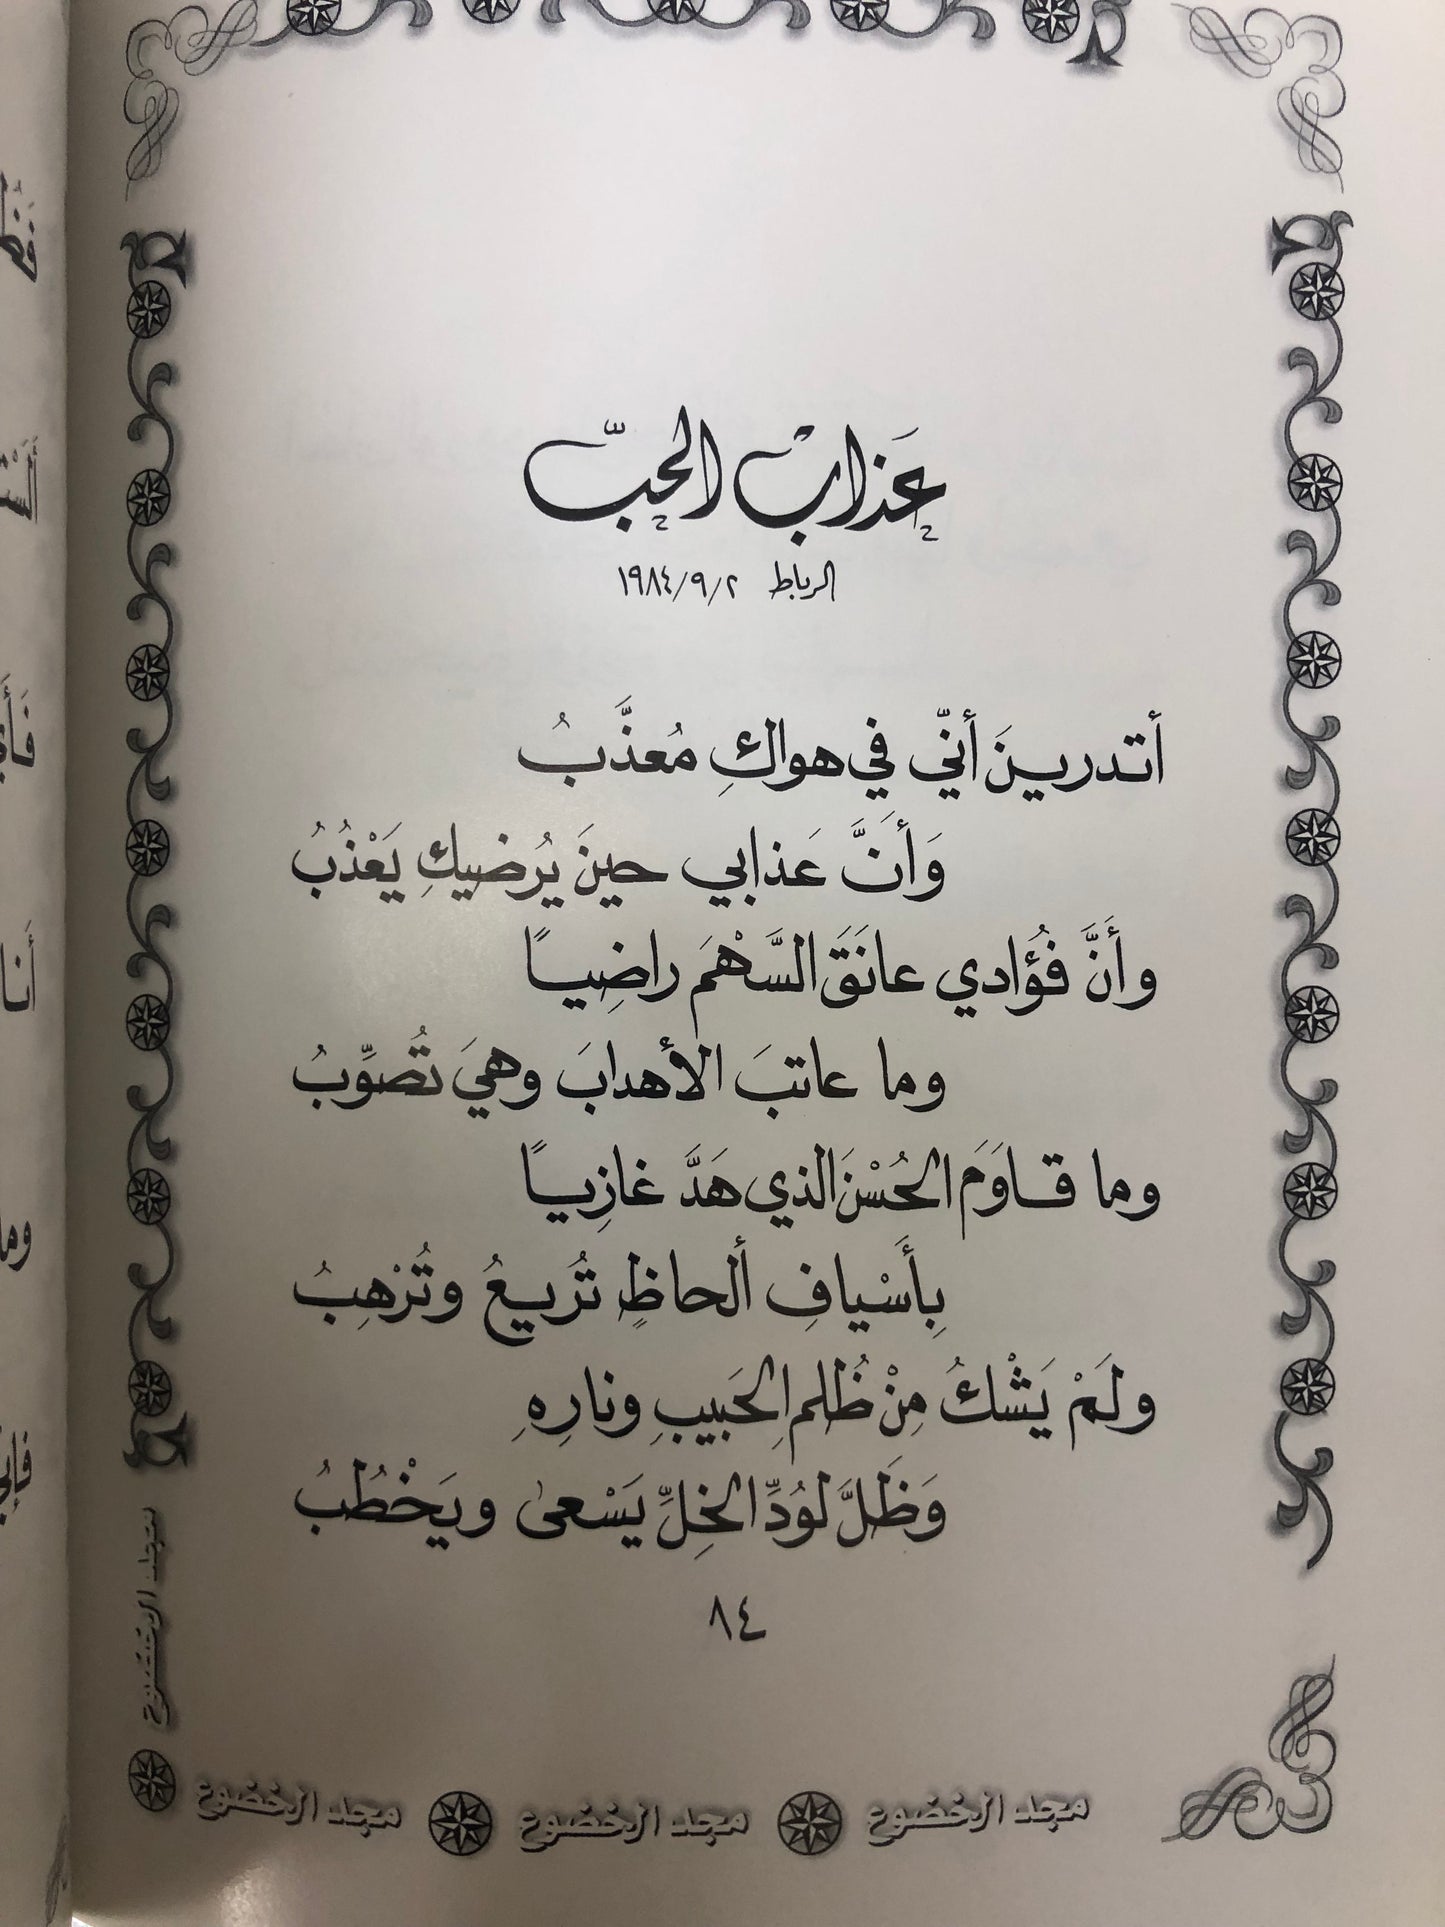 عَذابْ الحبّ
الرباط ١٩٨٤/٩/٢
أتدرينَ أنّي في هواكِ مُعذَّبُ
وَأَنَّ عَذابي حينَ يُرضيكِ يَعْذُبُ
وأَنَّ فُؤادي عانَقَ السَّهْمَ راضِياً
وما عاتبَ الأهدابَ وهيَ تُصوِّبُ
وما قاوَمَ الحُسْنَ الذي هَدَّ غازِياً
بِأَسْيافِ ألحاظٍ تُريعُ وتُرْهِبُ
ولَمْ يَشْكُ مِنْ ظُلمِ الحَبيبِ ونارِهِ
وَظَلَّ لوُدِّ الخِلِّ يَسْعىٰ ويَخْطُبُ
٨٤
مجد الخضوع
مجد الخضوع مجد الخضوع مجد الخضوع